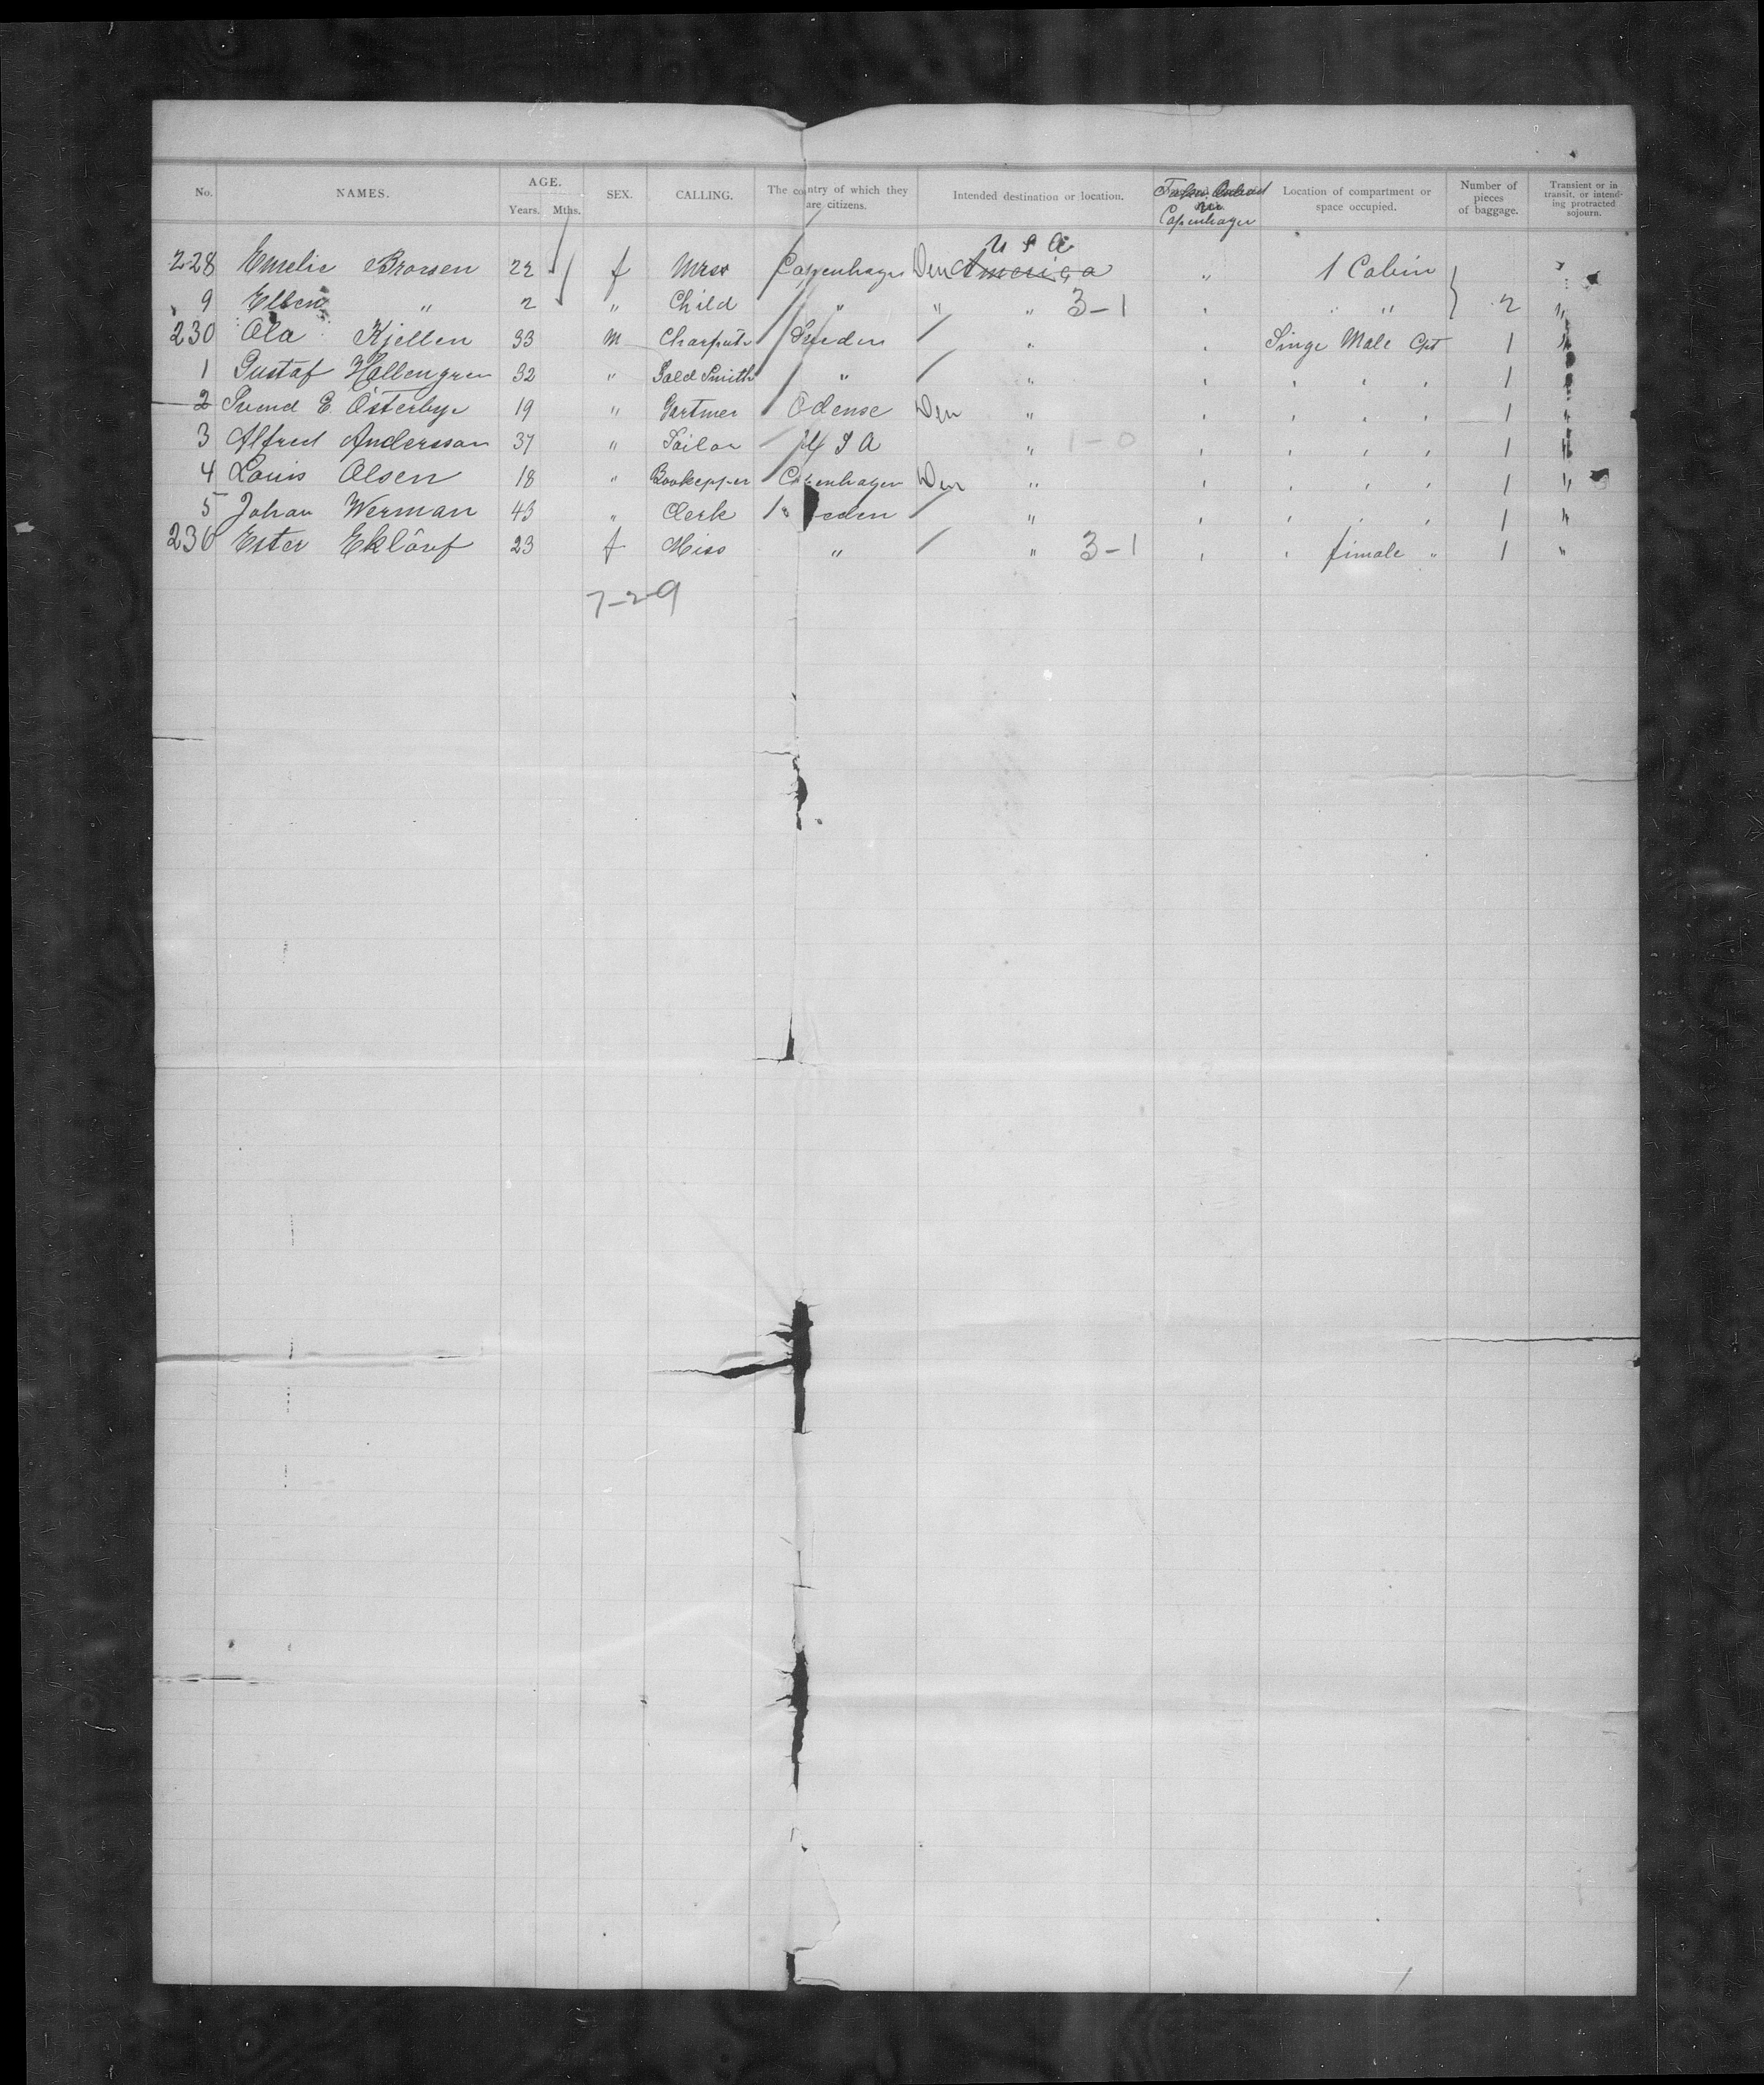 No. NAMES. AGE. Years. Mths. SEX. CALLING. The country of which they are citizens. Intended destination or location. Copenhagen Location of compartment or space occupied. Number of pieces of baggage. Transient or in transit, or intending protracted sojourn.
U S A
228 Emelie Brorsen 22 f Mrss Copenhagen Den America " 1 Cabin
9 Ellen " 2 " Child " " " 3-1 " " 2 "
230 Ola Kjellen 33 M Sweden " Singe Male Cpt 1 "
1 Gustaf Hallengren 32 " Gold Smith " " " " " 1 "
2 Svend E. Österbye 19 " Gartner Odense Den " " " " 1 "
3 Alfred Andersson 37 " Sailor U S A " 1-0 " " " " 1 "
4 Louis Olsen 18 " Bookepper Copenhagen Den " " " " " 1 "
5 Johan Werman 43 " Clerk eden " " " " " 1 "
236 Ester Eklöuf 23 f Miss " " 3-1 " " fimale " 1 "
7-2-9